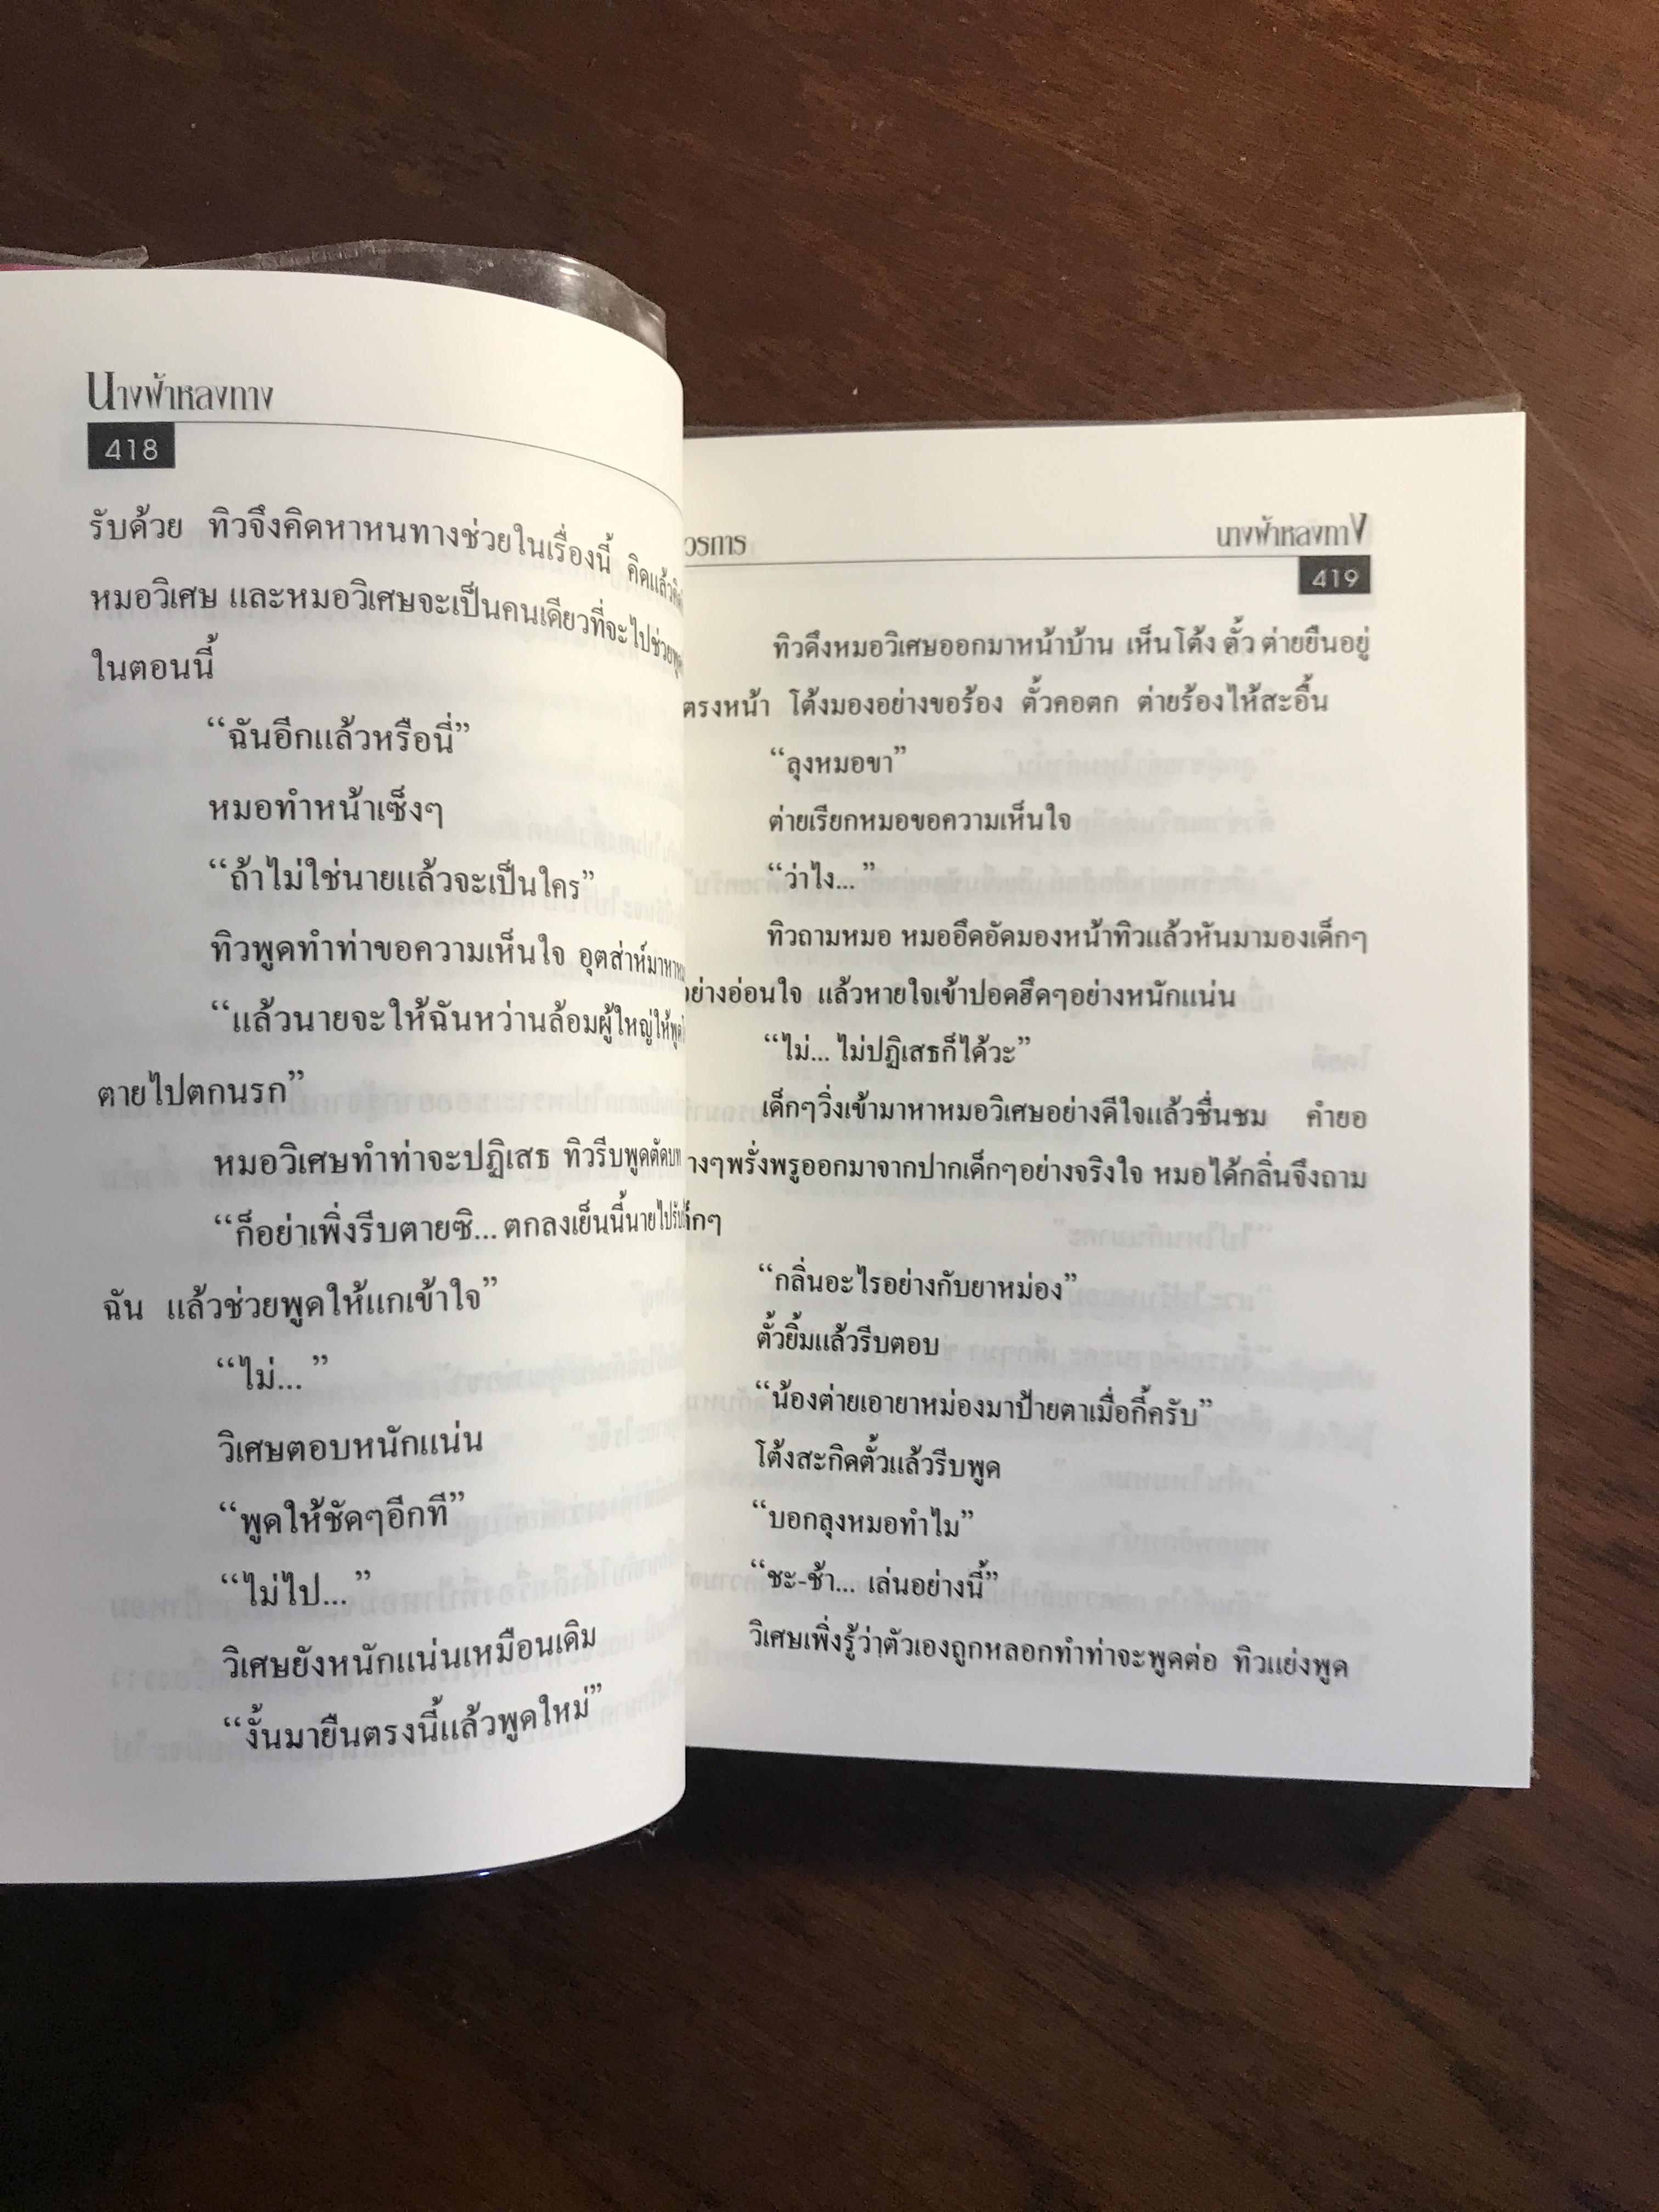 นางฟ้าหลงทาง
418
รับด้วย ทิวจึงคิดหาหนทางช่วยในเรื่องนี้ คิดแล้ว
หมอวิเศษ และหมอวิเศษจะเป็นคนเดียวที่จะไปช่วย
ในตอนนี้
“ฉันอีกแล้วหรือนี่”
หมอทำหน้าเซ็งๆ
“ถ้าไม่ใช่นายแล้วจะเป็นใคร”
ทิวพูดทำท่าขอความเห็นใจ อุตส่าห์มาหา
“แล้วนายจะให้ฉันหว่านล้อมผู้ใหญ่ให้
ตายไปตกนรก”
หมอวิเศษทำท่าจะปฏิเสธ ทิวรีบพูดตัดบท
“ก็อย่าเพิ่งรีบตายซิ... ตกลงเย็นนี้นายไป
ฉัน แล้วช่วยพูดให้แกเข้าใจ”
“ไม่...”
วิเศษตอบหนักแน่น
“พูดให้ชัดๆอีกที”
“ไม่ไป...”
วิเศษยังหนักแน่นเหมือนเดิม
“งั้นมายืนตรงนี้แล้วพูดใหม่”
นางฟ้าหลงทาง
419
ทิวดึงหมอวิเศษออกมาหน้าบ้าน เห็นโต้ง ตั้ว ต่ายยืนอยู่
ตรงหน้า โต้งมองอย่างขอร้อง ตั้วคอตก ต่ายร้องไห้สะอื้น
“ลุงหมอขา”
ต่ายเรียกหมอขอความเห็นใจ
“ว่าไง...”
ทิวถามหมอ หมออึดอัดมองหน้าทิวแล้วหันมามองเด็กๆ
อย่างอ่อนใจ แล้วหายใจเข้าปอดฮึดๆอย่างหนักแน่น
“ไม่... ไม่ปฏิเสธก็ได้วะ”
เด็กๆวิ่งเข้ามาหาหมอวิเศษอย่างดีใจแล้วชื่นชม คำยอ
างๆพรั่งพรูออกมาจากปากเด็กๆอย่างจริงใจ หมอได้กลิ่นจึงถาม
ด็กๆ
“กลิ่นอะไรอย่างกับยาหม่อง”
ตั้วยิ้มแล้วรีบตอบ
“น้องต่ายเอายาหม่องมาป้ายตาเมื่อกี้ครับ”
โต้งสะกิดตั้วแล้วรีบพูด
“บอกลุงหมอทำไม”
“ชะ-ช้า... เล่นอย่างนี้”
วิเศษเพิ่งรู้ว่าตัวเองถูกหลอกทำท่าจะพูดต่อ ทิวแย่งพูด